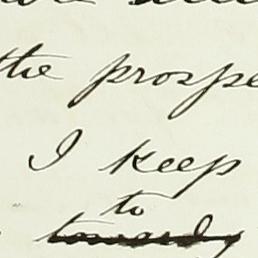 the prospe
I keep
to
towards